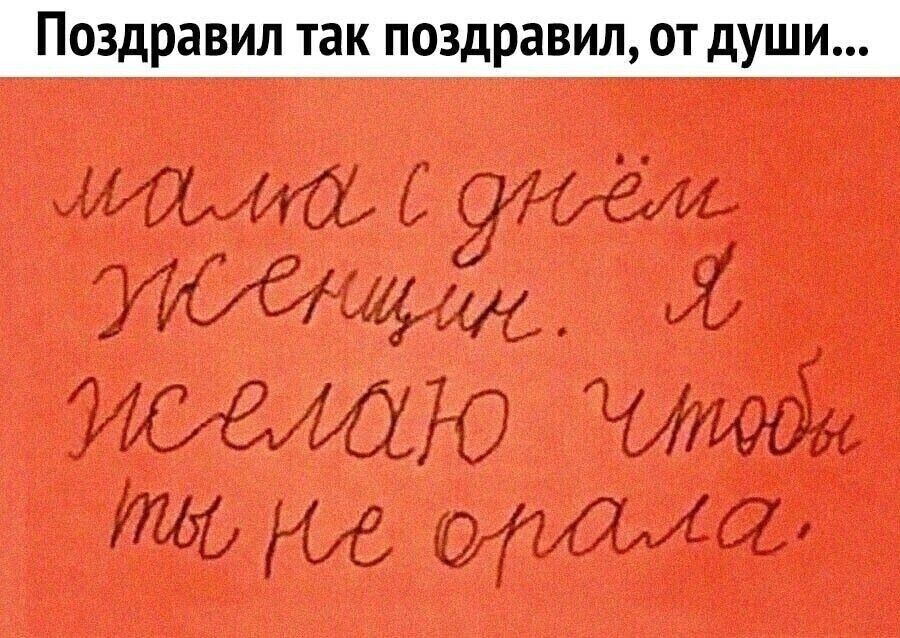 Поздравил так поздравил, от души...
мама с днём
женщин. Я
желаю чтобы
ты не орала.